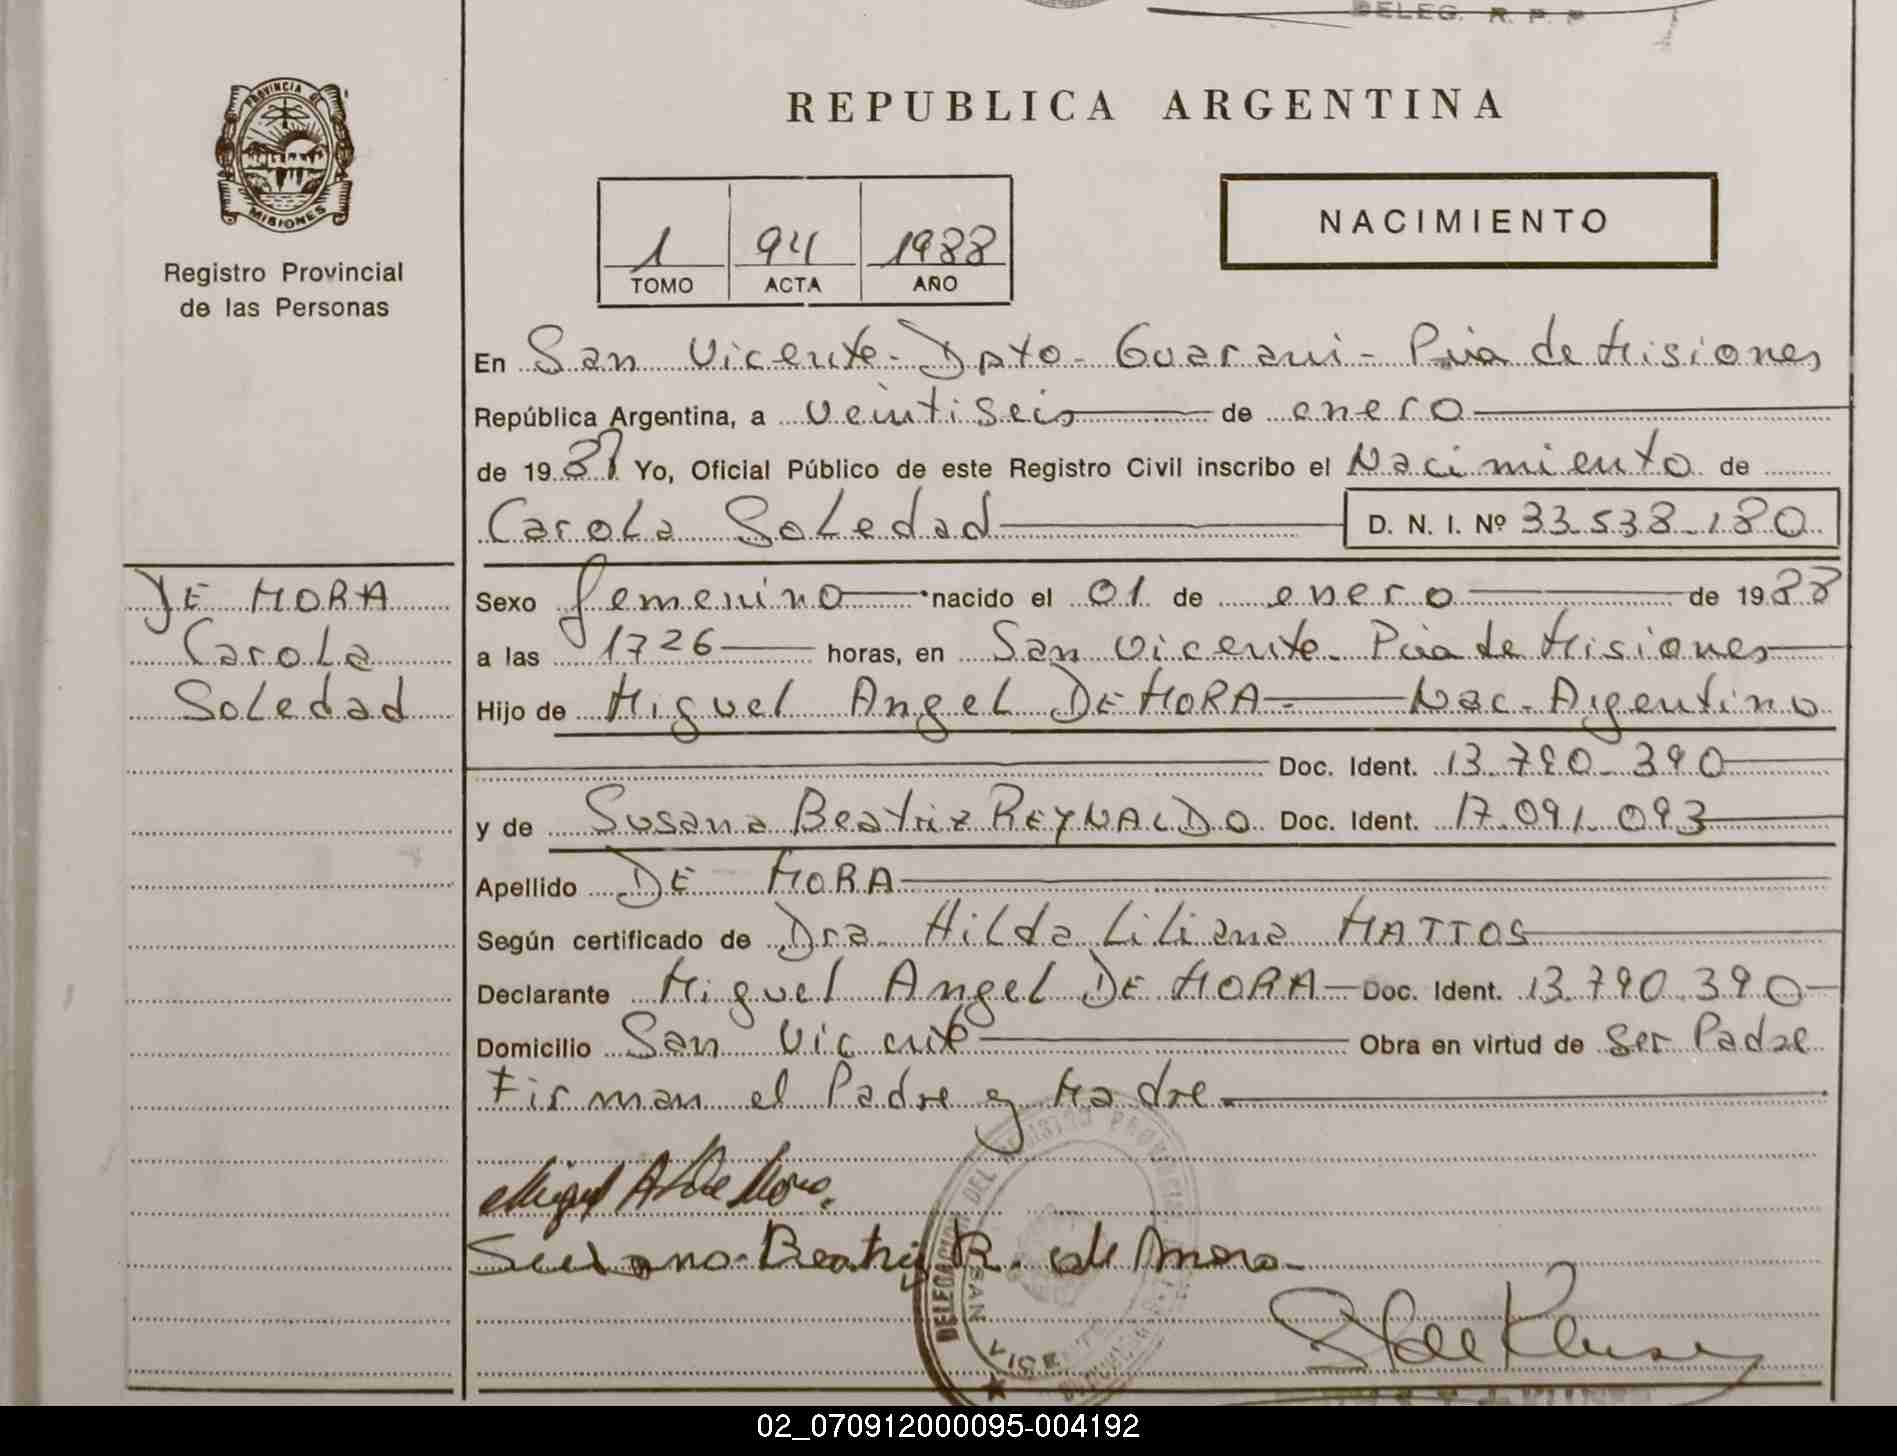 DELEG. R. P. P
PROVINCIA DE
MISIONES
Registro Provincial
de las Personas
REPUBLICA ARGENTINA
1 94 1988
TOMO ACTA AÑO
NACIMIENTO
En San Vicente - Dpto - Guarani - Pcia de Misiones
República Argentina, a veintiseis de enero
de 19 Yo, Oficial Público de este Registro Civil inscribo el Nacimiento de
Carola Soledad D. N. I. Nº 33.538.180
DE MORA
Carola
Soledad
Sexo femenino nacido el 01 de enero de 1988
a las 1726 horas, en San Vicente Pcia de Misiones
Hijo de Miguel Angel DE MORA - Nac. Argentino
Doc. Ident. 13.790.390
y de Susana Beatriz REYNALDO Doc. Ident. 17.091.093
Apellido DE MORA
Según certificado de Dra. Hilda Liliana MATTOS
Declarante Miguel Angel DE MORA Doc. Ident. 13.790.390
Domicilio San Vicente Obra en virtud de Ser Padre
Firman el Padre y Madre.
Miguel A. De Mora.
Susana Beatriz R. de Mora
DELEGACION DEL REGISTRO PROVINCIAL
SAN VICENTE
02_070912000095-004192